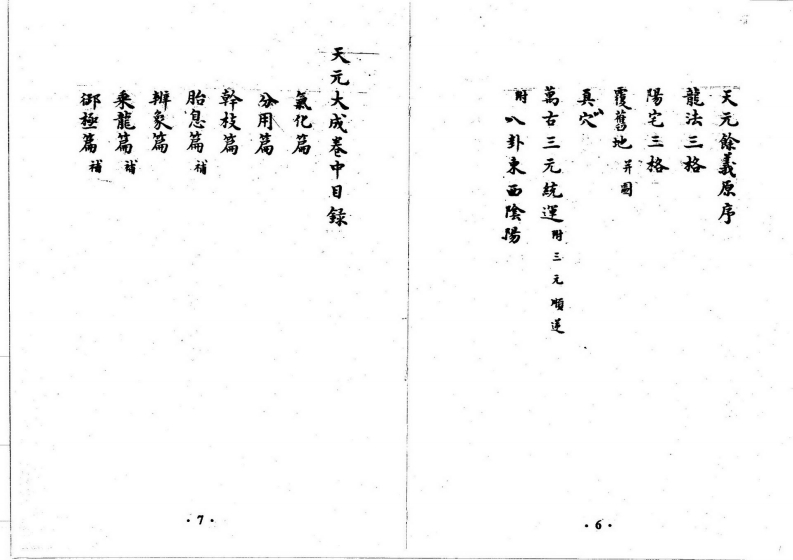 天元餘義原序
龍法三格
陽宅三格
覆舊地 并圖
真穴
萬古三元統運 附三元順逆
附八卦東西陰陽
·6·
天元大成卷中目録
氣化篇
分用篇
幹枝篇
胎息篇 補
辨象篇
乘龍篇 補
御極篇 補
·7·